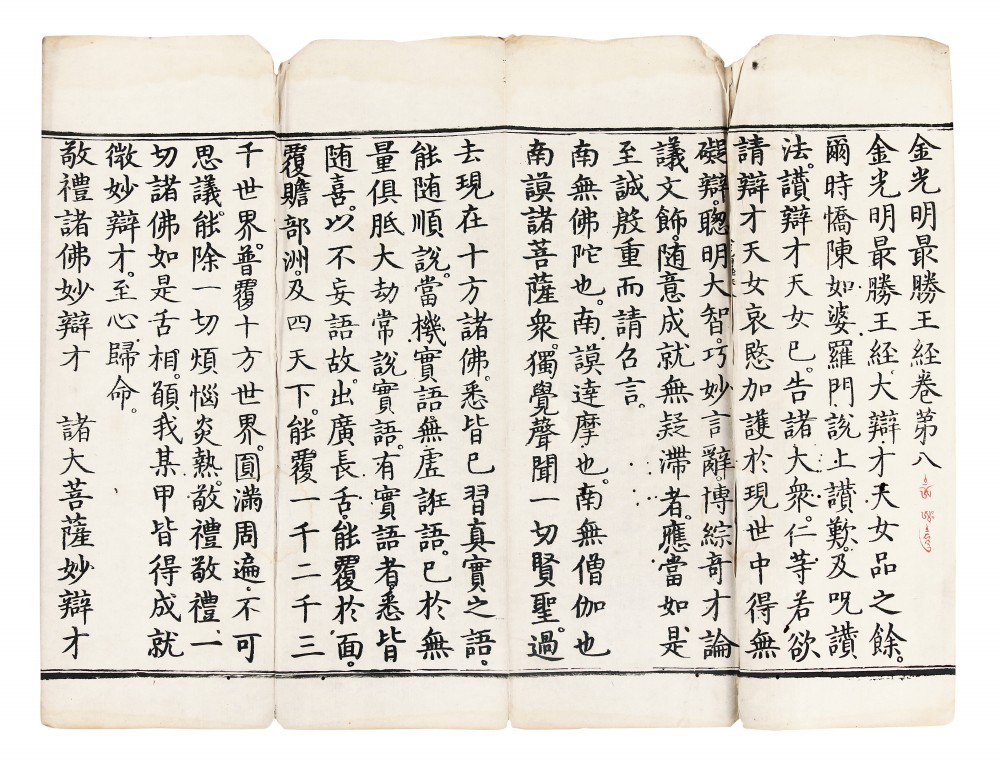 金光明最勝王經卷第八
金光明最勝王經大辯才天女品之餘。
爾時憍陳如婆羅門說上讚歎。及呪讚
法。讚辯才天女已。告諸大衆。仁等若欲
請辯才天女哀愍加護於現世中得無
礙辯。聰明大智。巧妙言辭。博綜奇才論
議文飾。随意成就無疑滯者。應當如是
至誠殷重而請召言。
南無佛陀也。南謨達摩也。南無僧伽也
南謨諸菩薩衆。獨覺聲聞一切賢聖。過
去現在十方諸佛。悉皆已習真實之語。
能随順說。當機實語無虛誑語。已於無
量俱胝大劫常說實語。有實語者。悉皆
随喜。以不妄語故。出廣長舌。能覆於面。
覆贍部洲。及四天下。能覆一千二千三
千世界。普覆十方世界。圓滿周遍。不可
思議。能除一切煩惱炎熱。敬禮敬禮一
切諸佛如是舌相。願我某甲皆得成就
微妙辯才。至心歸命。
敬禮諸佛妙辯才　諸大菩薩妙辯才